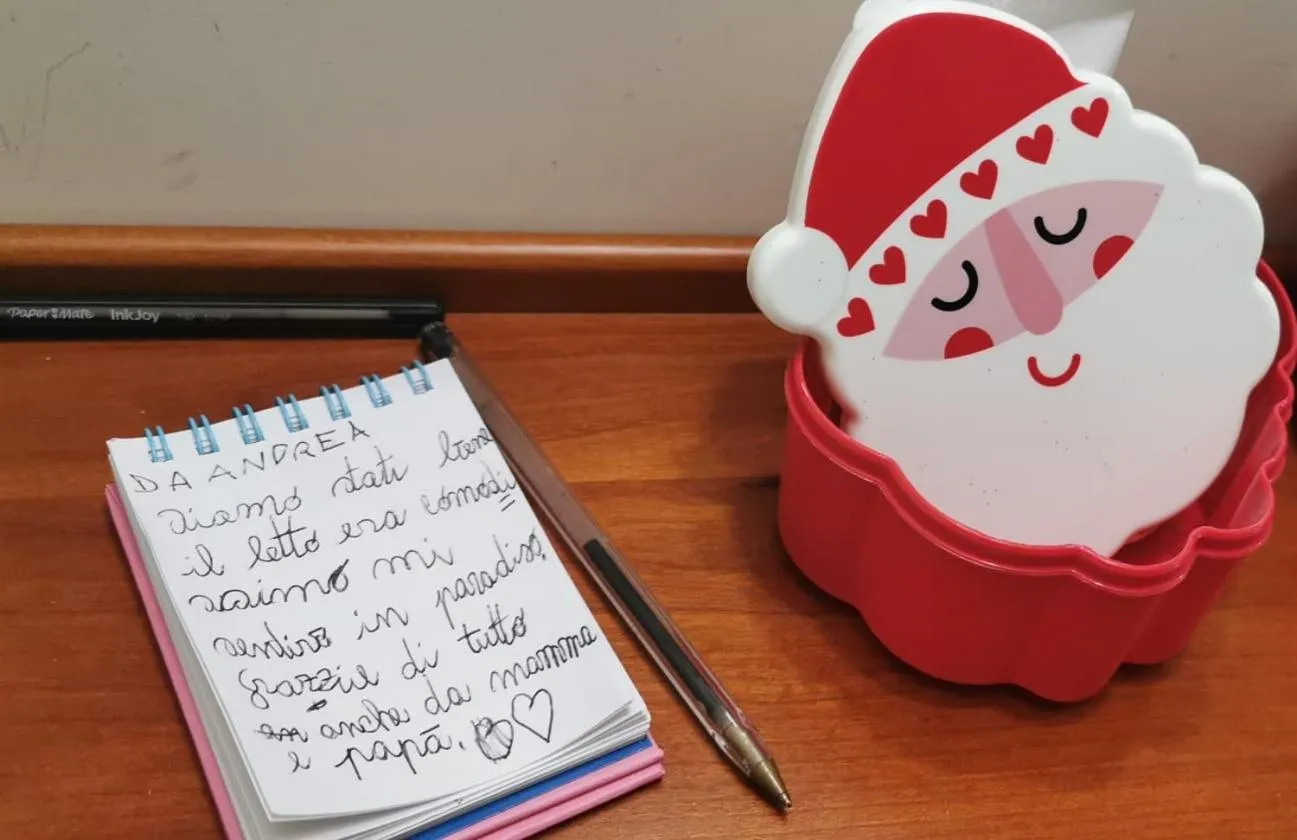 PaperMate InkJoy
DA ANDREA
siamo stati bene
il letto era comodi
saimo mi
sentivo in paradiso,
Grazzie di tutto
anche da mamma
e papà.